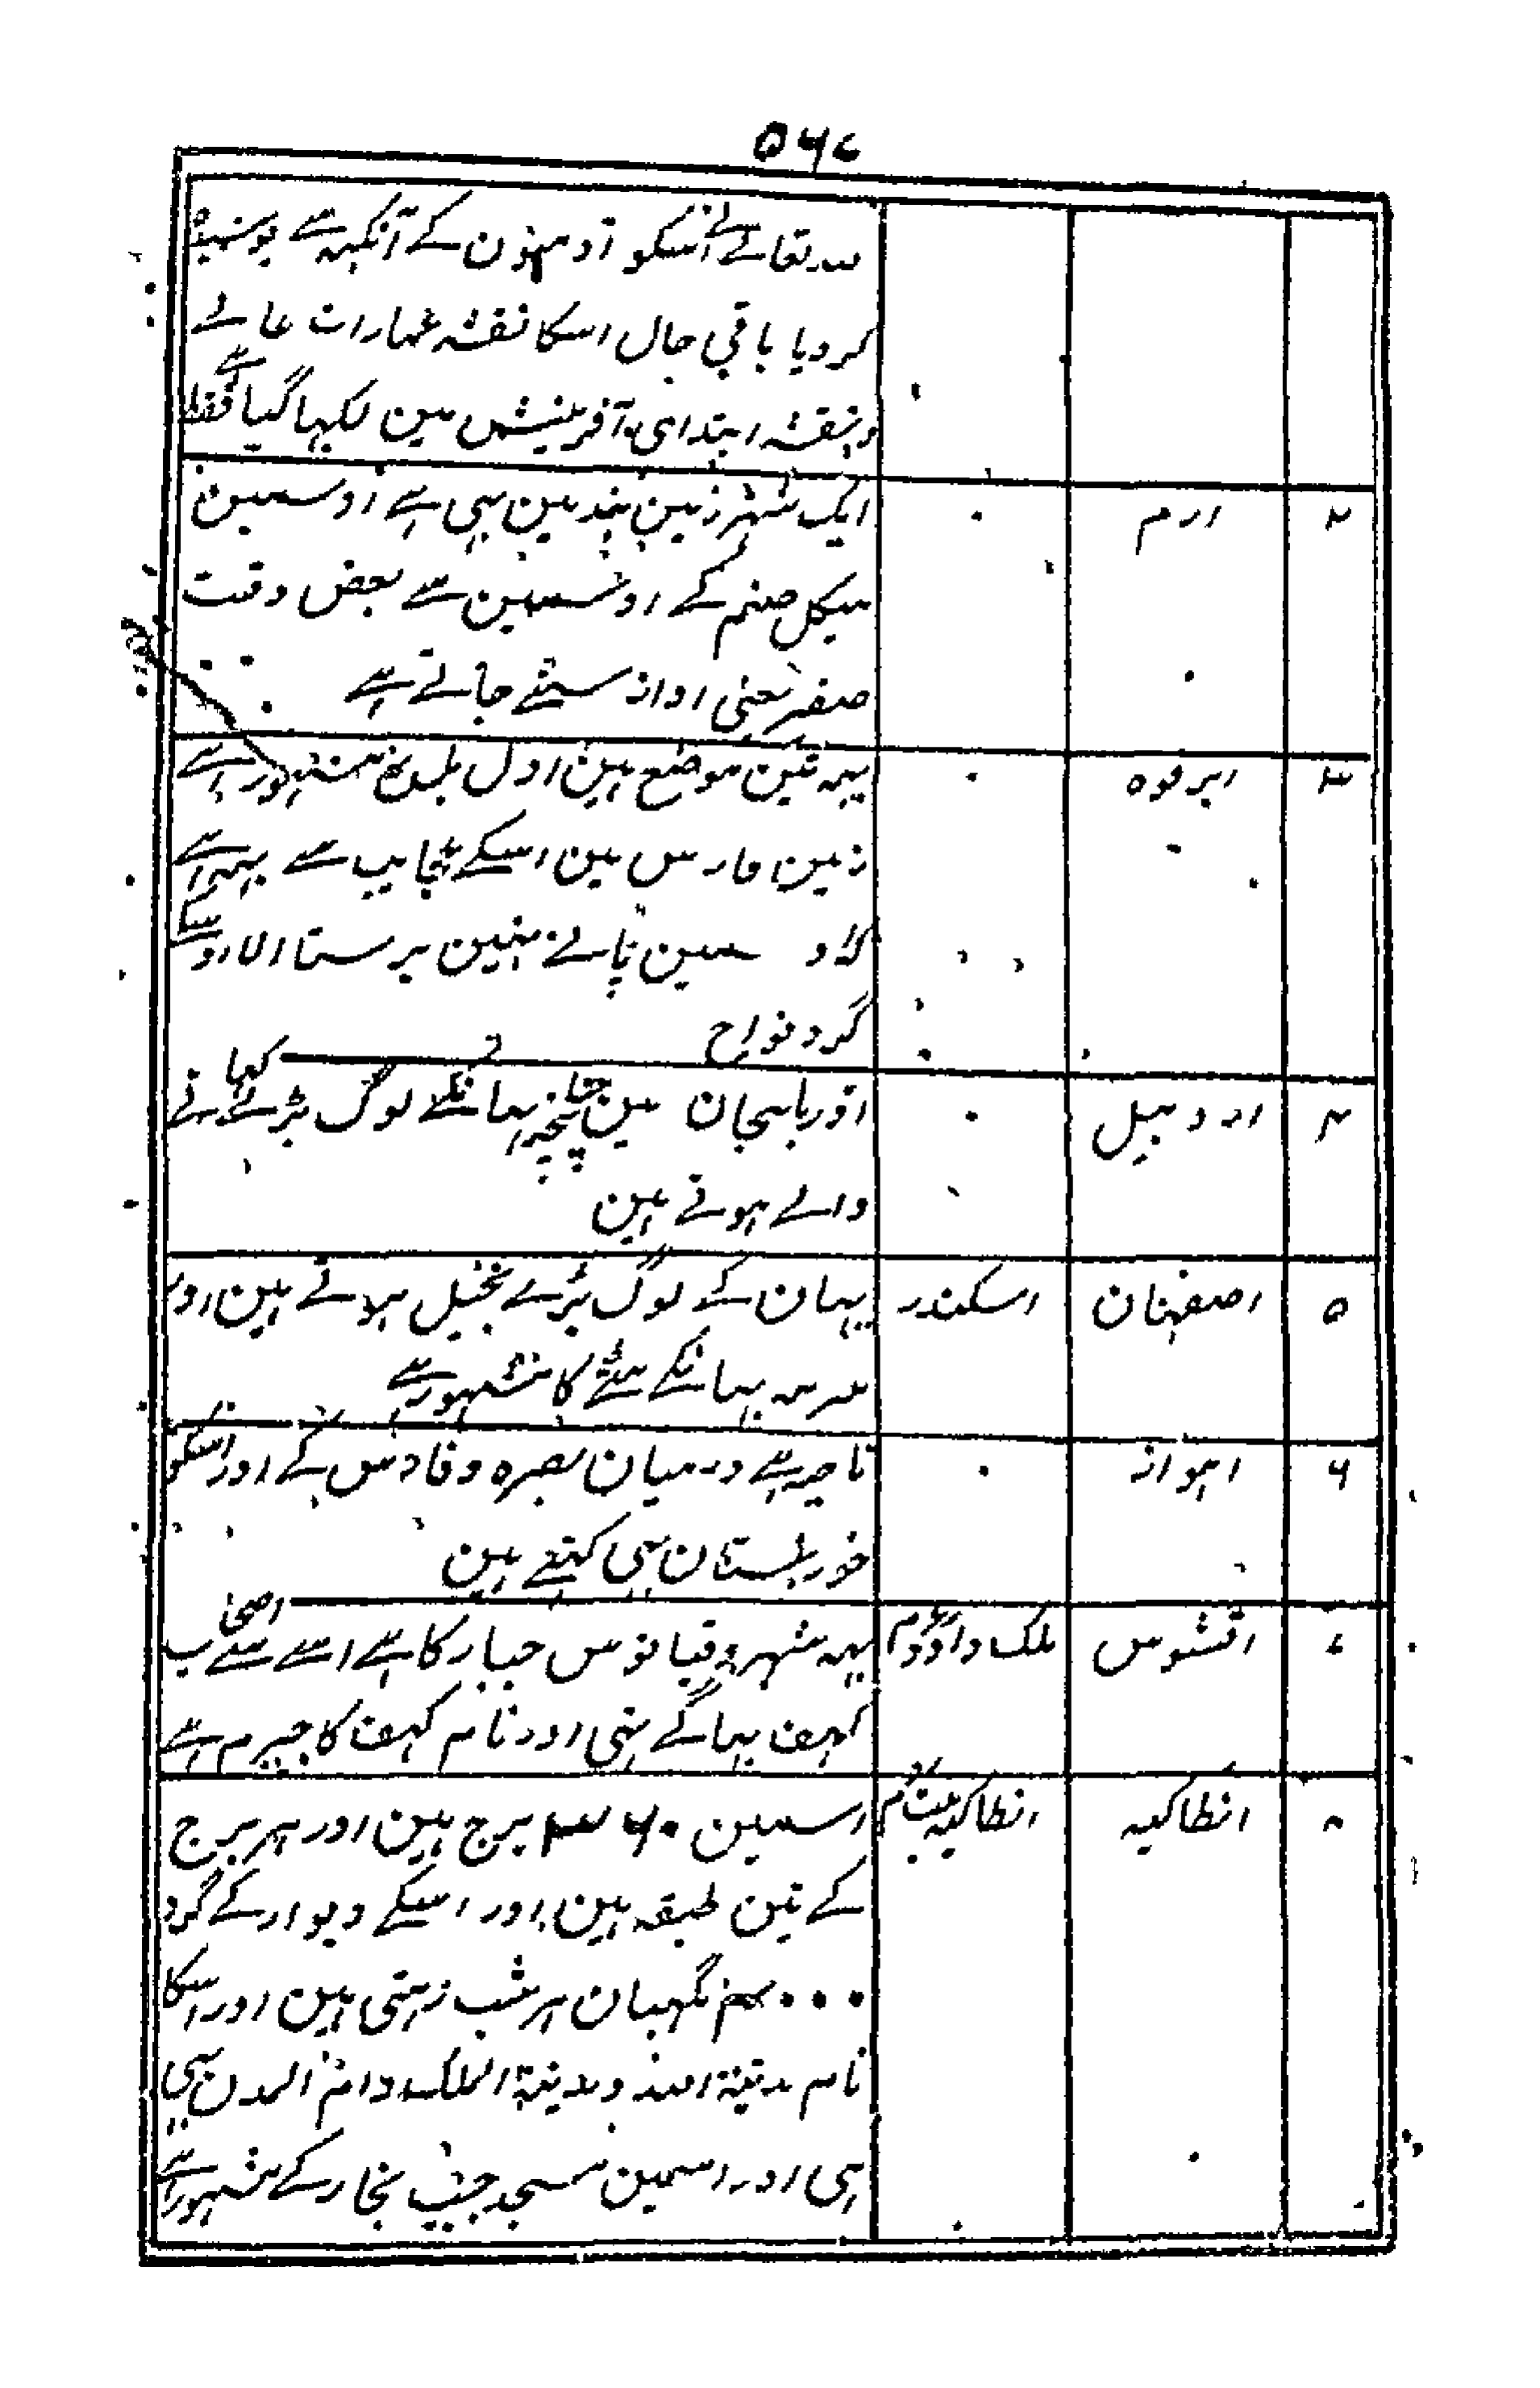 ۵۶۷
تعالے نے اسکو آدمیون کے آنکہہ سے پوشیدہ
کر دیا باقی حال اسکا نقشہ عمارات عالے
ونقشہ ابتدای آفرینش مین لکہا گیا ہے فقط
۲ ارم ۰ ایک شہر زمین ہند مین بہی ہے اوسمین
ہیکل صنم کے اوسمین سے بعض وقت
صفیر یعنی اواز سننے جاتے ہے
۳ ابرقوہ ۰ یہہ تین موضع ہین اول بلدہ مشہور ہے
زمین فارس مین اسکے عجایب سے یہہ ہے
کہ اوسمین پانے نہین برستا الا اوسکے
گرد نواح
۴ اردبیل ۰ اذربایجان مین چنانچہ یہانکے لوگ بڑے کہانے
والے ہوتے ہین
۵ اصفہان اسکندر یہان کے لوگ بڑے بخیل ہوتے ہین اور
سرمہ یہانکے کا مشہور ہے
۶ اہواز ۰ ناحیہ ہے درمیان بصرہ وفارس کے اور اسکو
خوزستان بہی کہتے ہین
۷ افسوس ملک یہہ شہر دقیانوس جبار کا ہے اسے سے اصحاب
کہف بہاگے تہی اور نام کہف کا جیرم ہے
۸ انطاکیہ انطاکیہ اسمین ۳۶۰ برج ہین اور ہر برج
کے تین طبقہ ہین اور اسکے دیوار کے گرد
۴۰۰۰ نگہبان ہر شب رہتی ہین اور اسکا
نام مدینۃ اللہ ومدینۃ الملک وام المدن بہی
ہی اور اسمین مسجد حبیب نجار کے مشہور ہے